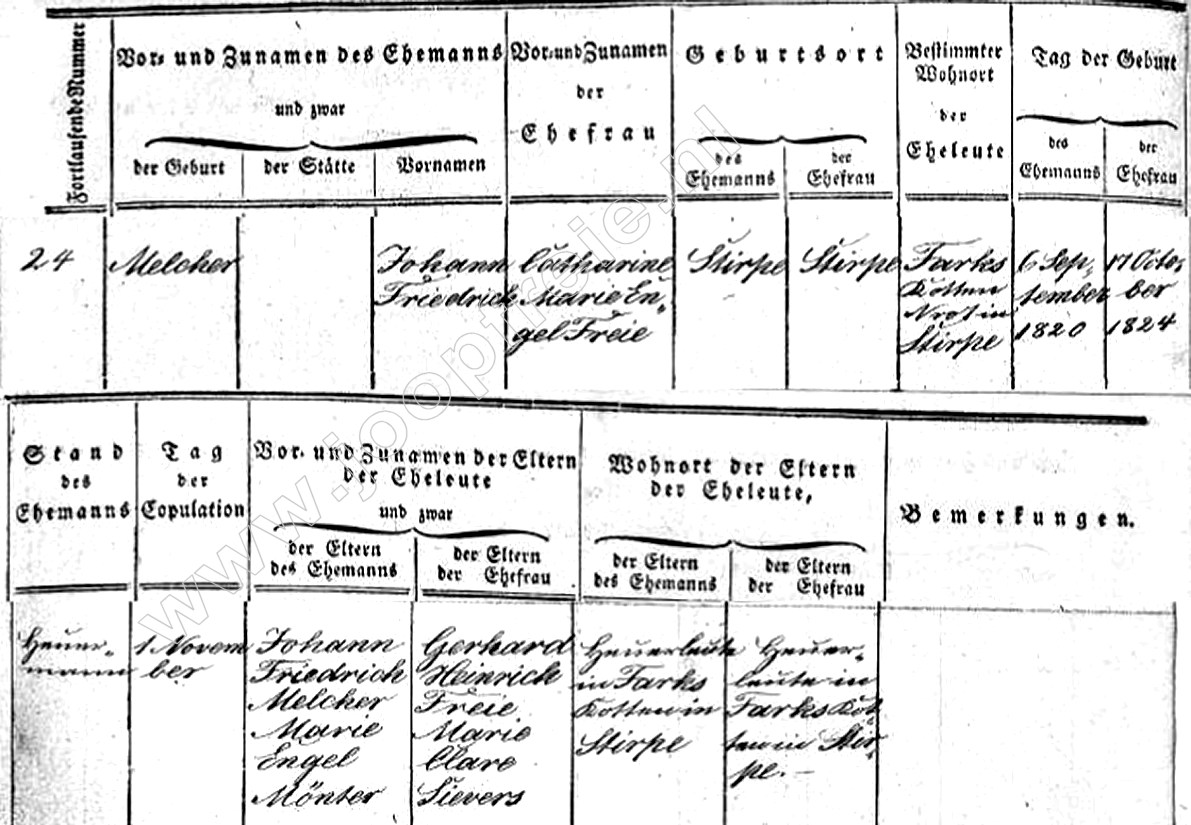 Fortlaufende Nummer
Vor- und Zunamen des Ehemanns
und zwar
der Geburt
der Stätte
Vornamen
Vor- und Zunamen
der
Ehefrau
Geburtsort
des
Ehemanns
der
Ehefrau
Bestimmter
Wohnort
der
Eheleute
Tag der Geburt
des
Ehemanns
der
Ehefrau
24
Melcher
Johann
Friedrich
Catharine
Marie En-
gel Freie
Stirpe
Stirpe
Farks
Kotten
in
Stirpe
6 Sep-
tember
1820
17 Octo-
ber
1824
Stand
des
Ehemanns
Tag
der
Copulation
Vor- und Zunamen der Eltern
der Eheleute
und zwar
der Eltern
des Ehemanns
der Eltern
der Ehefrau
Wohnort der Eltern
der Eheleute,
der Eltern
des Ehemanns
der Eltern
der Ehefrau
Bemerkungen.
Heuer-
mann
1 Novem
ber
Johann
Friedrich
Melcher
Marie
Engel
Mönter
Gerhard
Heinrich
Freie
Marie
Clare
Sievers
Heuerleute
in Farks
Kotten in
Stirpe
Heuer-
leute in
Farks Kot
ten in Stir-
pe.-
www.jooptreie.nl